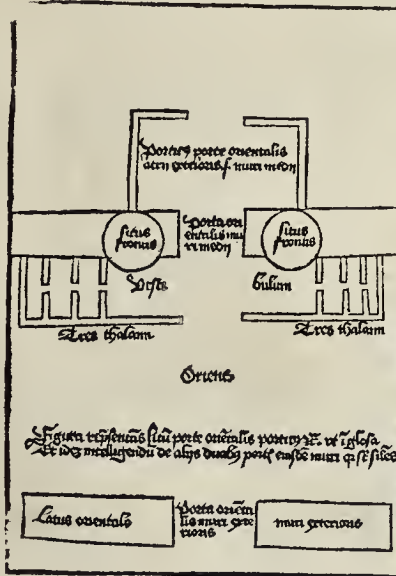 Porticus porte orientalis
atrii exterioris s. muri medii
situs
frontis
Porta ori
entalis mu
ri medii
situs
frontis
Vesti
bulum
Tres thalami
Tres thalami
Oriens
Figura representans situm porte orientalis
Et idem intelligendum de aliis duabus portis eiusdem muri
Latus orientale
Porta orien
talis muri exte
rioris
muri exterioris